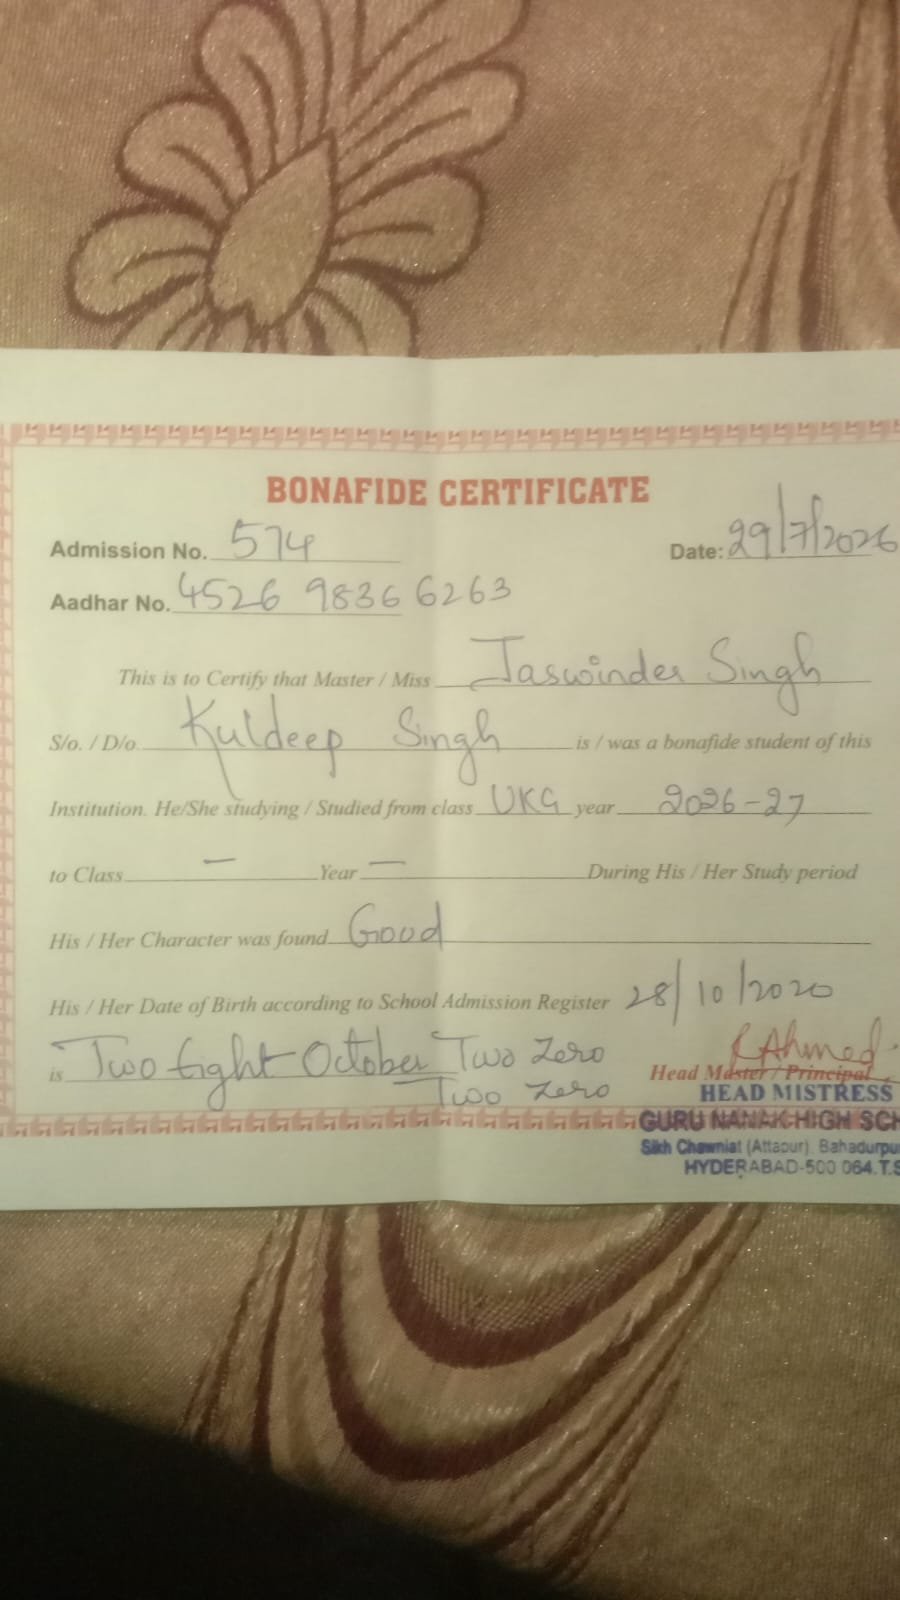 BONAFIDE CERTIFICATE
Admission No. 574 Date: 29/7/2026
Aadhar No. 4526 9836 6263
This is to Certify that Master / Miss Jaswinder Singh
S/o. / D/o. Kuldeep Singh is / was a bonafide student of this
Institution. He/She studying / Studied from class UKG year 2026-27
to Class — Year — During His / Her Study period
His / Her Character was found Good
His / Her Date of Birth according to School Admission Register 28/10/2020
is Two Eight October Two Zero
Two Zero
Head Master / Principal
HEAD MISTRESS
GURU NANAK HIGH SCH
Sikh Chawniat (Attapur), Bahadurpu
HYDERABAD-500 064.T.S